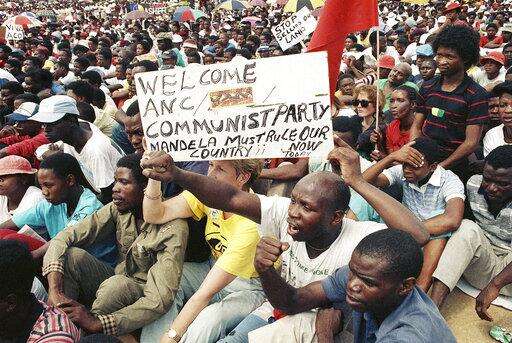 WELCOME
ANC/
COMMUNIST PARTY
MANDELA MUST RULE OUR
COUNTRY!! NOW
TODAY
STOP
SELLING OUR
LAND